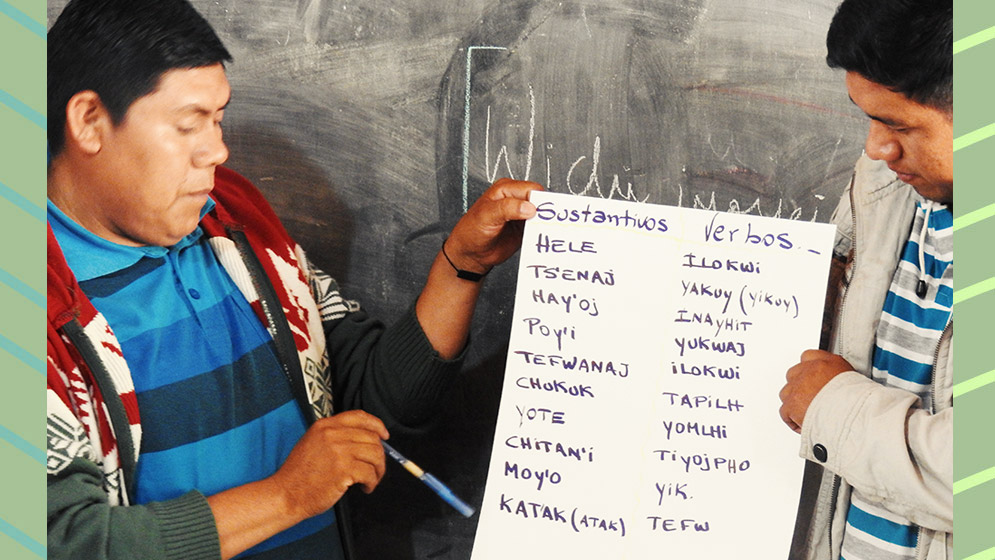 Sustantivos Verbos.-
HELE ILOKWI
TS'ENAJ YAKUY (YIKUY)
HAY'OJ INAYHIT
POY'I YUKWAJ
TEFWANAJ ILOKWI
CHUKUK TAPILH
YOTE YOMLHI
CHITAN'I TIYOJPHO
MOY'O YIK.
KATAK (ATAK) TEFW